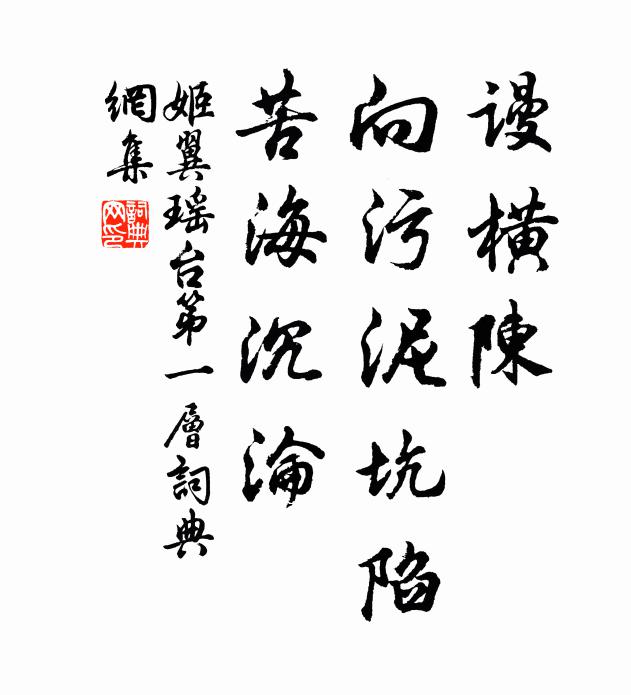 謾橫陳
向污泥坑陷
苦海沉淪
姬翼瑤台第一層詞典
網集
詞典
网印